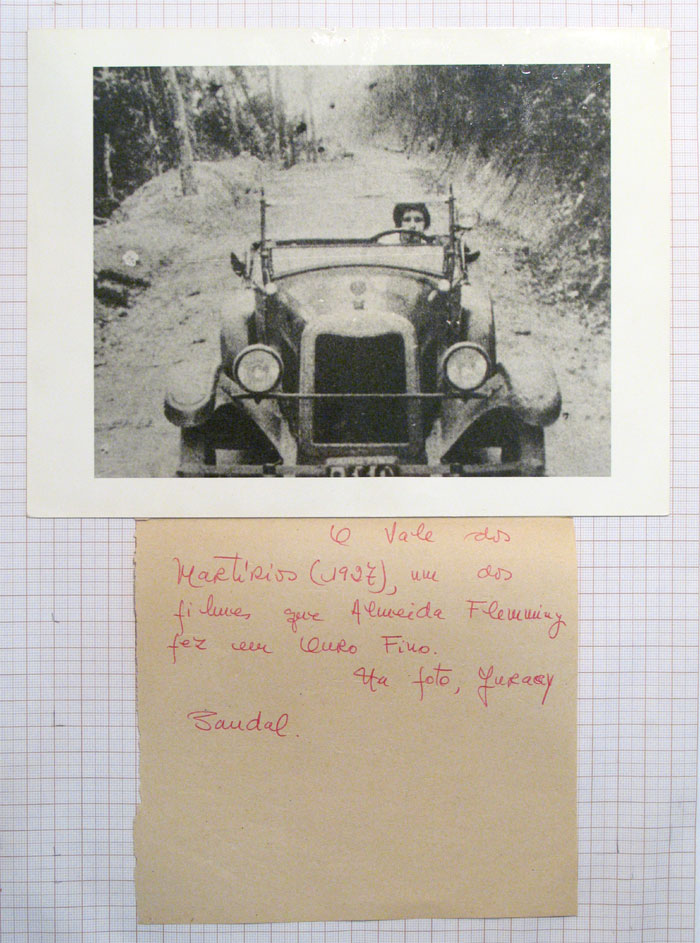 O Vale dos
Martírios (1927), um dos
filmes que Almeida Flemming
fez em Ouro Fino.
Na foto, Juracy
Sandal.